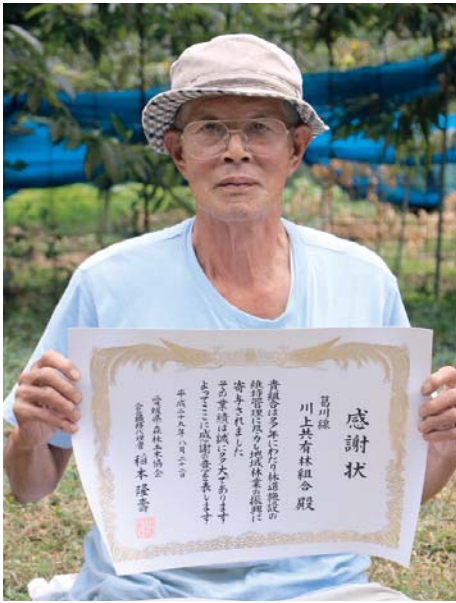 感謝状
葛川線
川上共有林組合 殿
貴組合は多年にわたり林道施設の
維持管理に尽力し地域林業の振興に
寄与されました
その業績は誠に多大であります
よってここに感謝の意を表します
平成二十九年八月二十二日
愛媛県森林土木協会
会長職務代理者 稲本隆壽